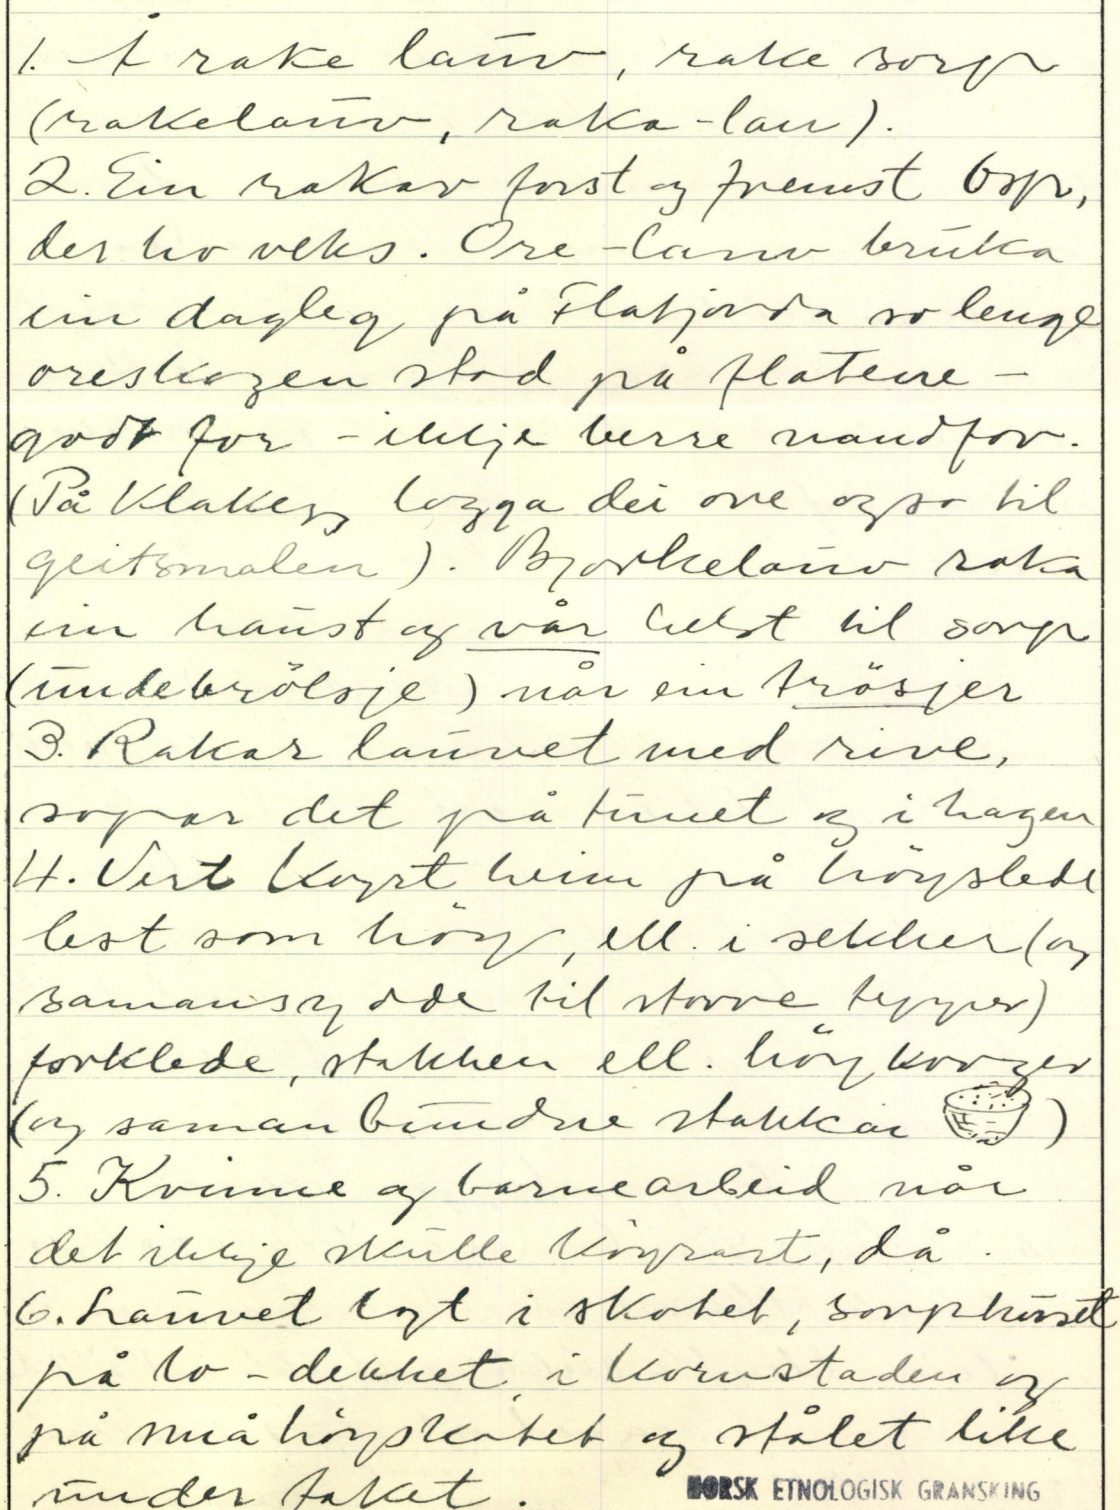 1. Å rake lauv, rake sorp
(rakelauv, raka-lau).
2. Ein rakar først og fremst Osp,
der ho veks. Ore-lauv bruka
ein dagleg på Flatjorda so lenge
oreskogen stod på flatene -
godt for - ikkje berre naudfor.
(På Klakegg logga dei ore ogso til
geitsmalen). Bjørkelauv raka
ein haust og vår helst til sorp
(undebrölsje) når ein trösjer
3. Rakar lauvet med rive,
sopar det på tunet og i hagen
4. Vert køyrt heim på höyslede
lest som höy, ell. i sekker (og
samansydde til større tepper)
forklede, stakken ell. höykorger
(og saman bundne stakkar )
5. Kvinne og barnearbeid når
det ikkje skulle köyrast, då.
6. Lauvet lagt i skotet, sorphuset
på lo-dekket, i kornstaden og
på små höyskotet og stålet like
under taket.
NORSK ETNOLOGISK GRANSKING